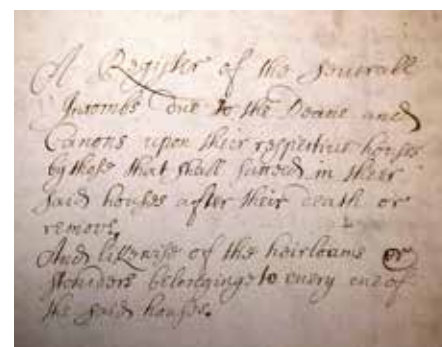 A Register of the severall
Incombs due to the Deane and
Canons upon their respective houses
by those that shall succeed in their
said houses after their death or
remove,
And likewise of the heirloams or
standers belonginge to every one of
the said houses.